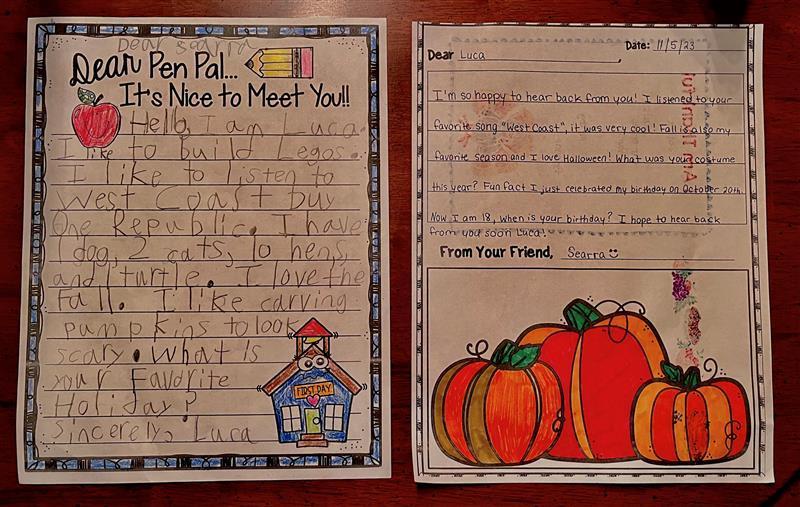 Dear Searra
Dear Pen Pal...
It's Nice to Meet You!!
Hello, I am Luca.
I like to build Legos.
I like to listen to
West Coast buy
One Republic. I have
1 dog, 2 cats, 10 hens,
and 1 turtle. I love the
fall. I like carving
pumpkins to look
scary. What is
your Favorite
Holiday?
Sincerely, Luca
FIRST DAY
Date: 11/5/23
Dear Luca,
I'm so happy to hear back from you! I listened to your
favorite song "West Coast", it was very cool! Fall is also my
favorite season and I love Halloween! What was your costume
this year? Fun fact I just celebrated my birthday on October 20th.
Now I am 18, when is your birthday? I hope to hear back
from you soon Luca!
From Your Friend, Searra